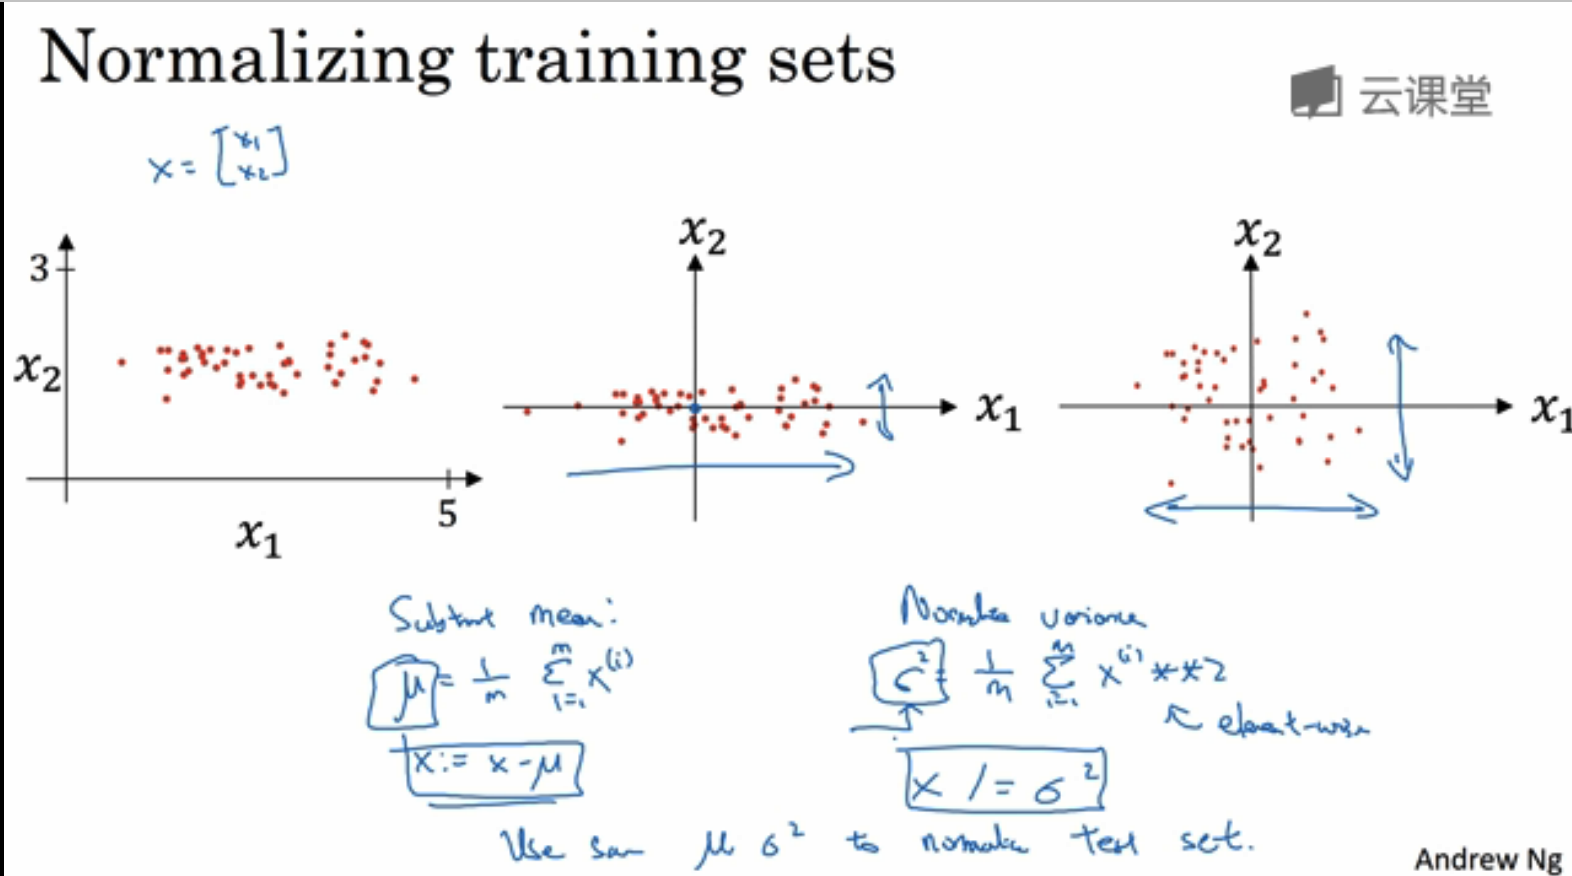 Normalizing training sets
云课堂
x = [x1 x2]
x2
x2
3
x2
x1
x1
5
x1
Subtract mean:
Normalize variance
μ = 1/m Σ i=1 m x(i)
σ² = 1/m Σ i=1 m x(i) **2
← element-wise
x := x - μ
x /= σ²
Use same μ σ² to normalize test set.
Andrew Ng